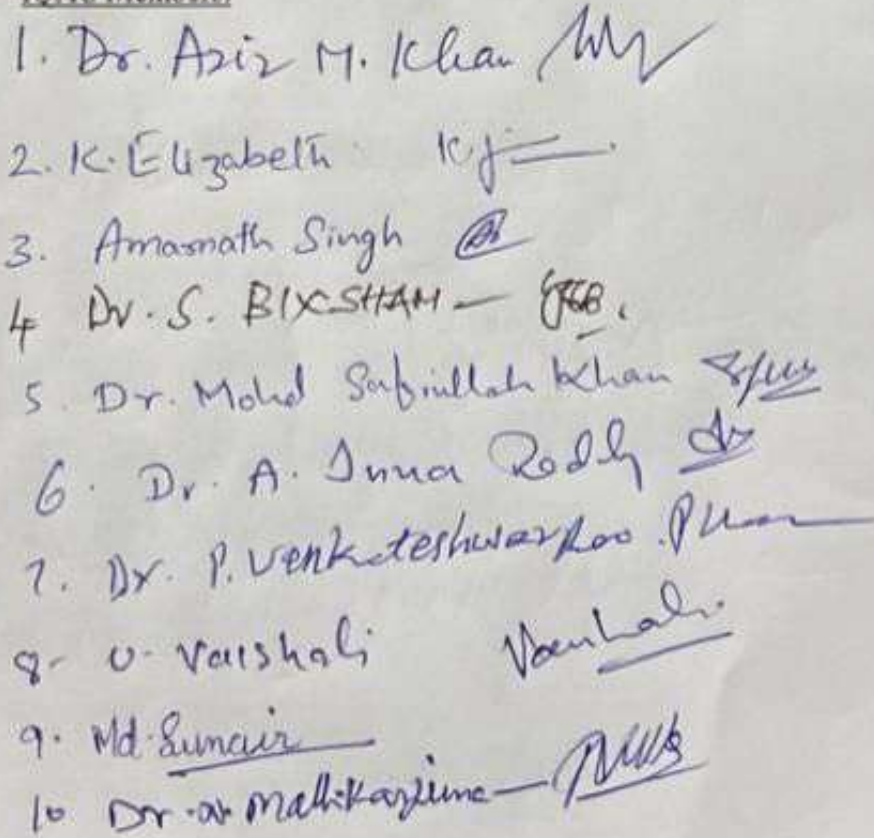 1. Dr. Aziz M. Khan
2. K. Elizabeth
3. Amarnath Singh
4 Dr. S. BIXSHAM —
5. Dr. Mohd Safiullah Khan
6. Dr. A. Inna Reddy
7. Dr. P. Venkateshwar Rao.
8- U. Vaishali Vaishali
9. Md.
10 Dr. Mallikarjuna —